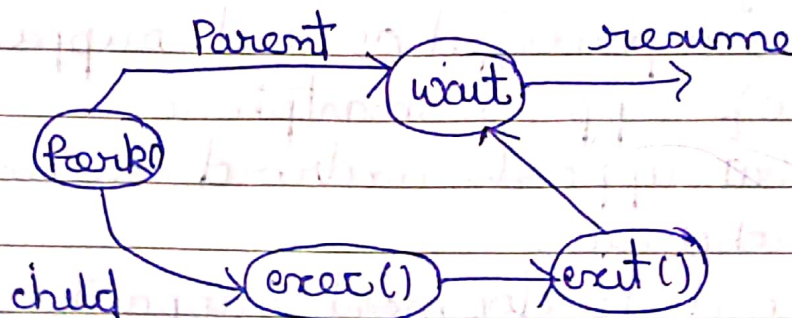 Parent
resume
wait
fork()
child
exec()
exit()